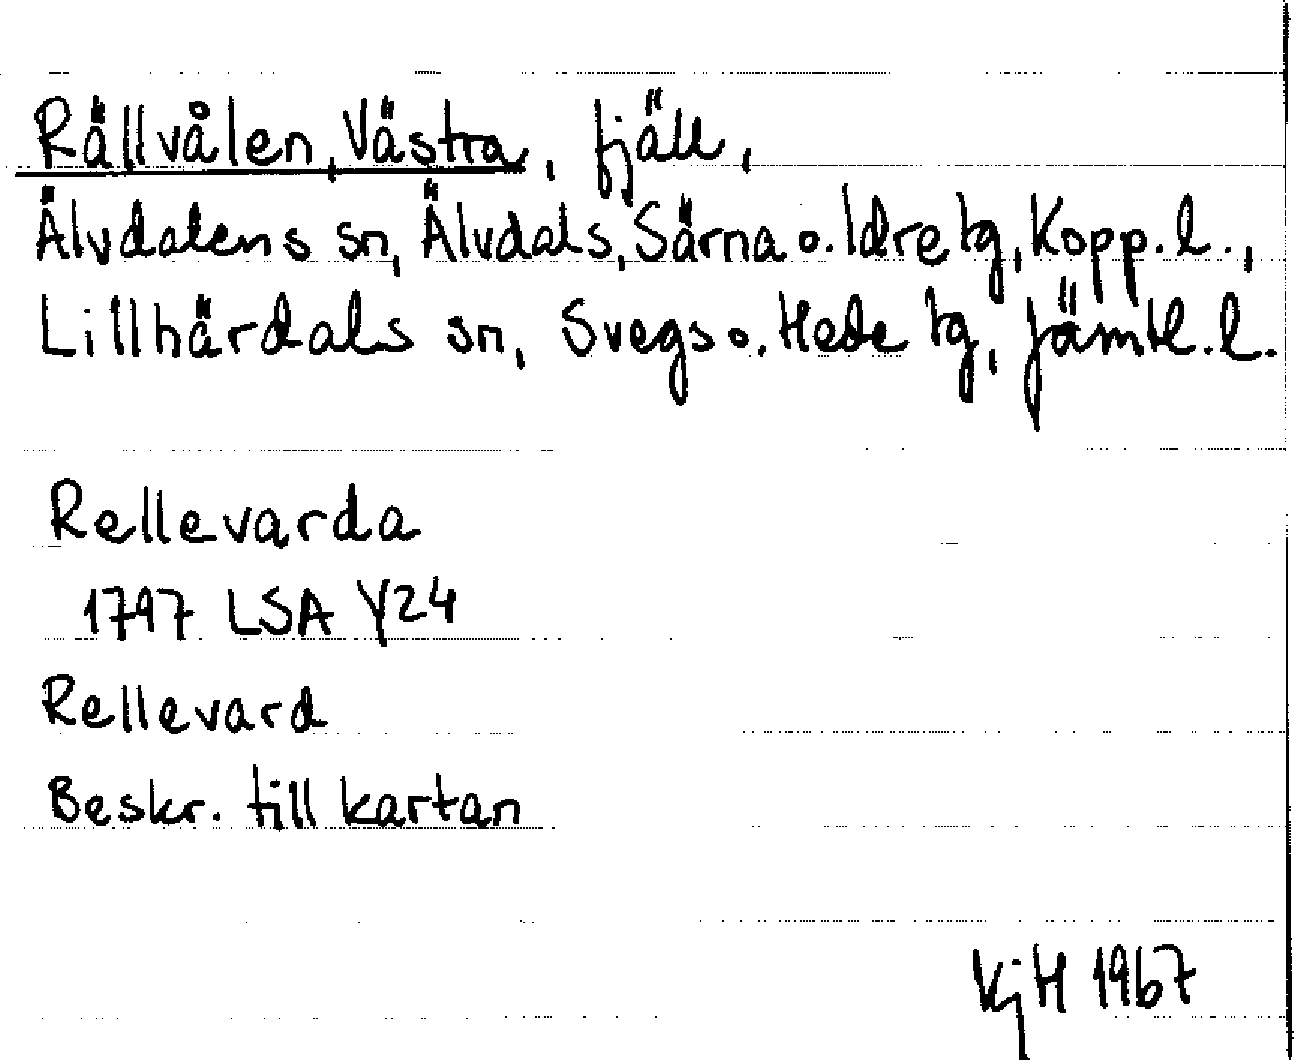 Rällvålen, Västra, fjäll,
Älvdalens sn, Älvdals, Särna o. Idre tg, Kopp. l.,
Lillhärdals sn, Svegs o. Hede tg, Jämtl. l.
Rellevarda
1797 LSA Y24
Rellevard
Beskr. till kartan
KjH 1967